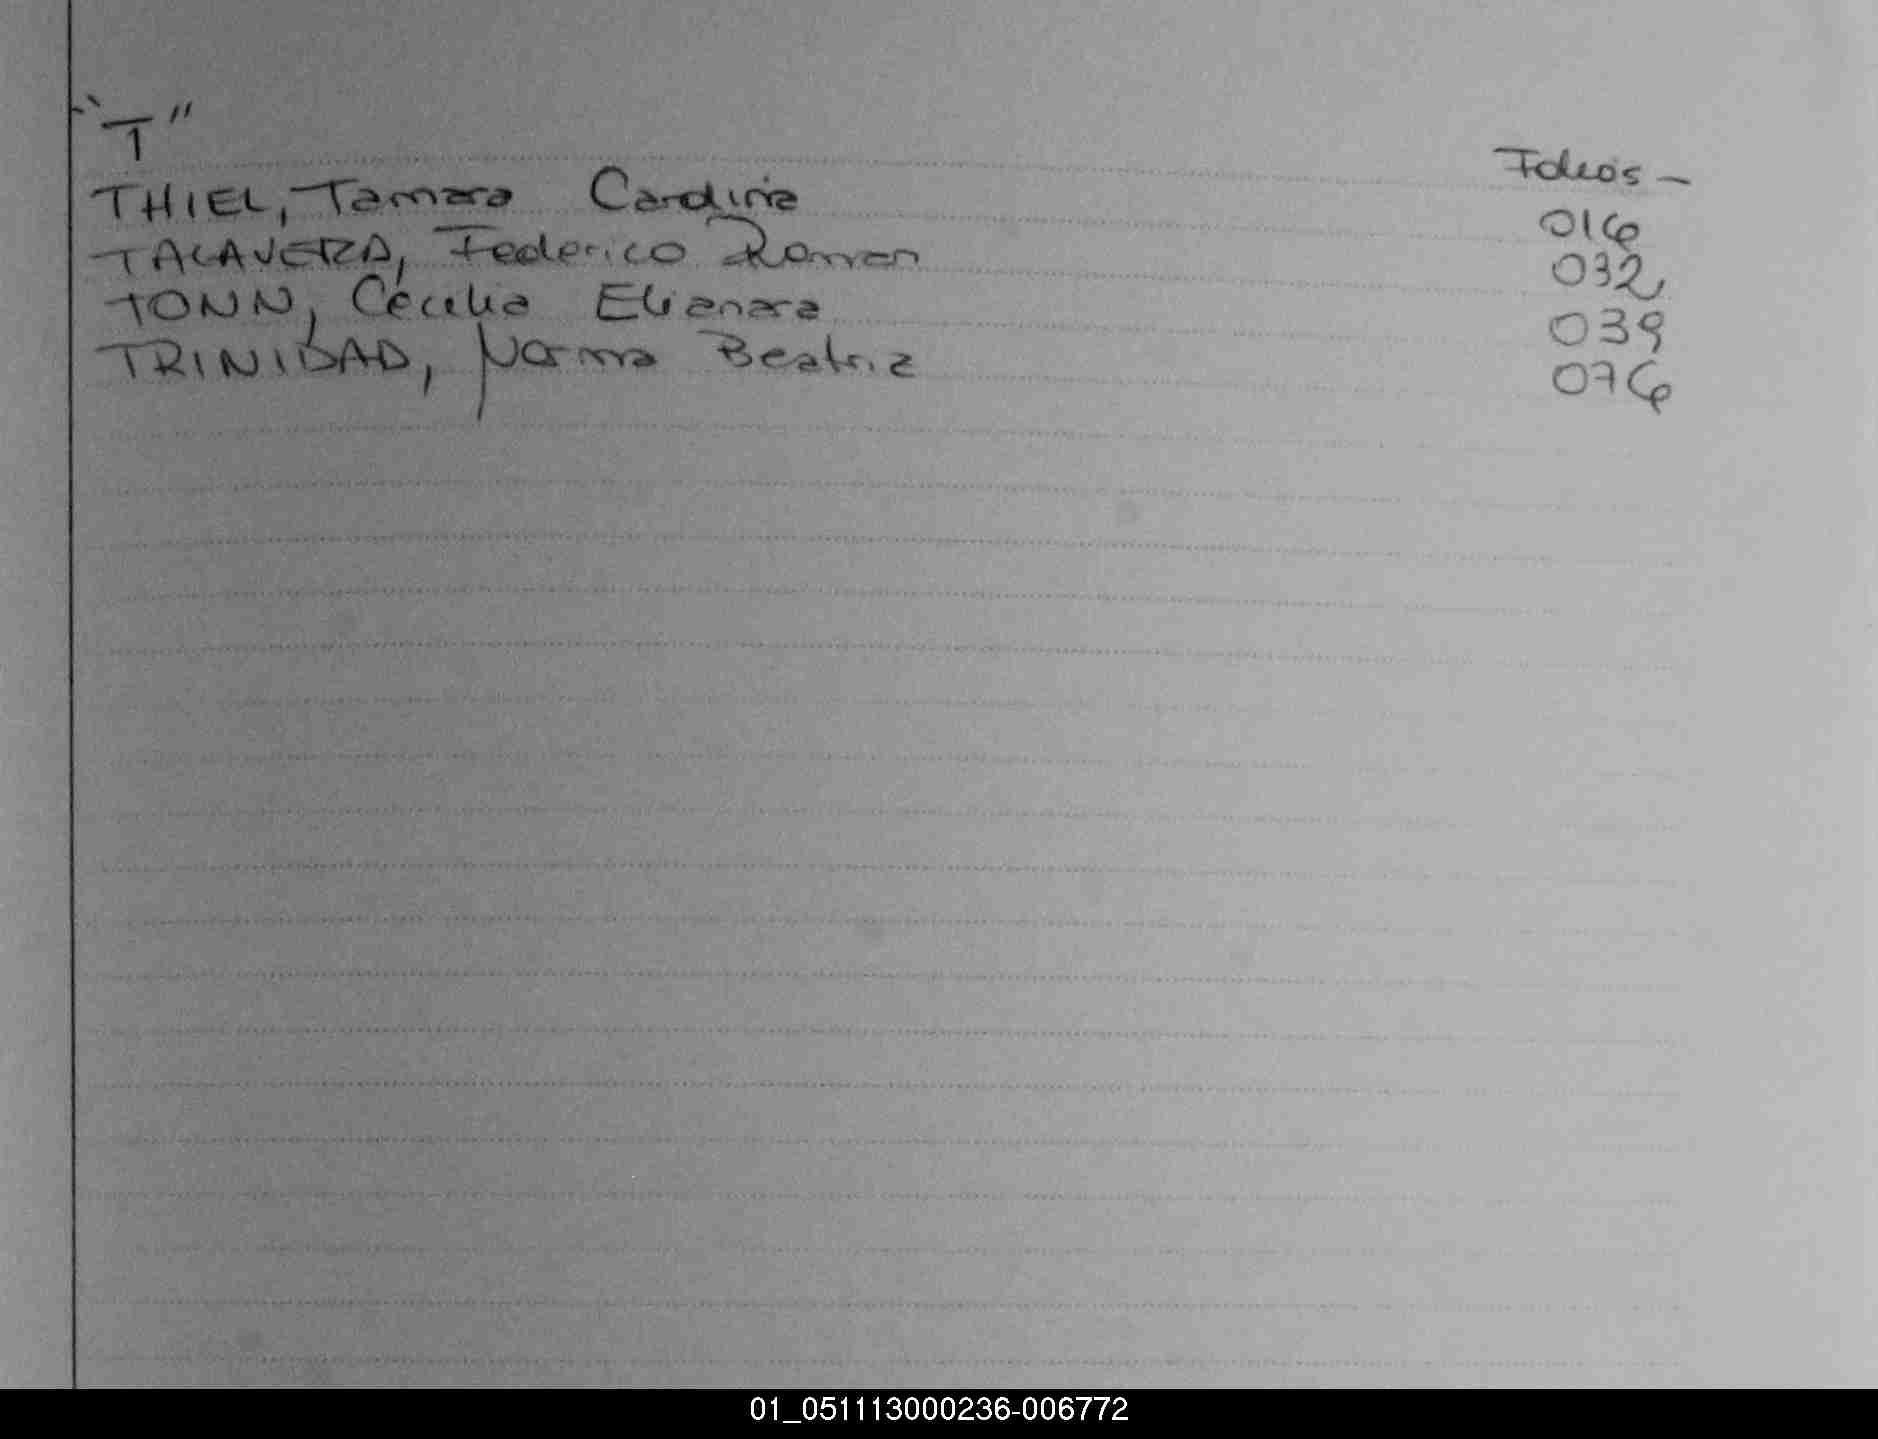 "T"
Folios -
THIEL, Tamara Cardina 016
TALAVERA, Federico Roman 032
TONN, Cecilia Elianara 039
TRINIDAD, Norma Beatriz 076
01_051113000236-006772